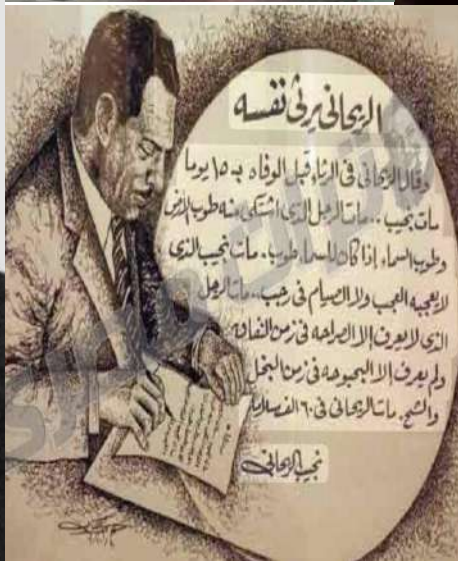 الريحانى يرثى نفسه
وقال الريحانى فى الرثاء قبل الوفاه بـ ١٥ يوما
مات نجيب .. مات الرجل الذى اشتكى منه طوب الأرض
وطوب السماء إذا كان للسماء طوب . مات نجيب الذى
لايعجبه العجب ولا الصيام فى رجب .. مات الرجل
الذى لايعرف إلا الصراحه فى زمن النفاق
ولم يعرف إلا البحبوحه فى زمن البخل
والشح . مات الريحانى فى ٦٠ ألف سلامة
نجيب الريحانى